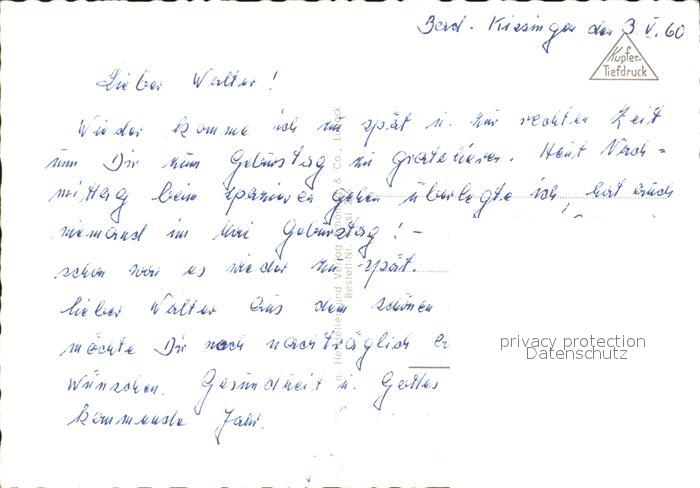 Bad. Kissingen den 3.V.60
Kupfer-
Tiefdruck
Lieber Walter!
Wieder komme ich zu spät u. zur rechten Zeit
um Dir zum Geburstag zu gratulieren. Heut Nach=
mittag beim spazieren gehen überlegte ich, hat auch
niemand im Mai Geburstag! -
schon war es wieder zu spät.
lieber Walter aus dem schönen
möchte Dir noch nachträglich
wünschen. Gesundheit u. Gottes
kommende Jahr.
privacy protection
Datenschutz
Bestell-Nr.